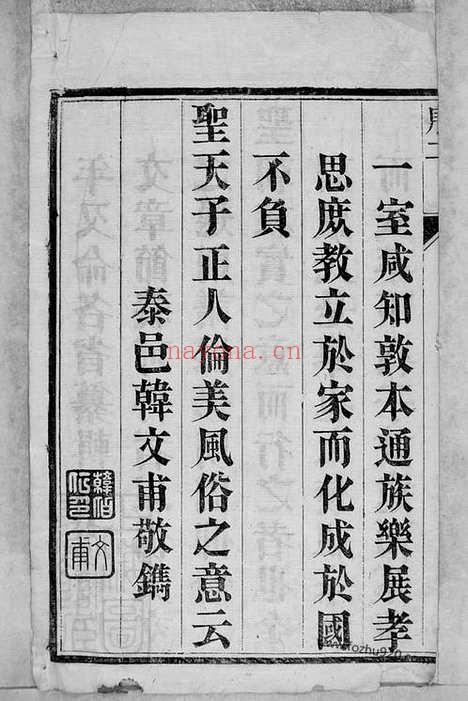 一室咸知敦本通族樂展孝
思庶教立於家而化成於國
不負
聖天子正人倫美風俗之意云
泰邑韓文甫敬鐫
文甫
nayona.cn